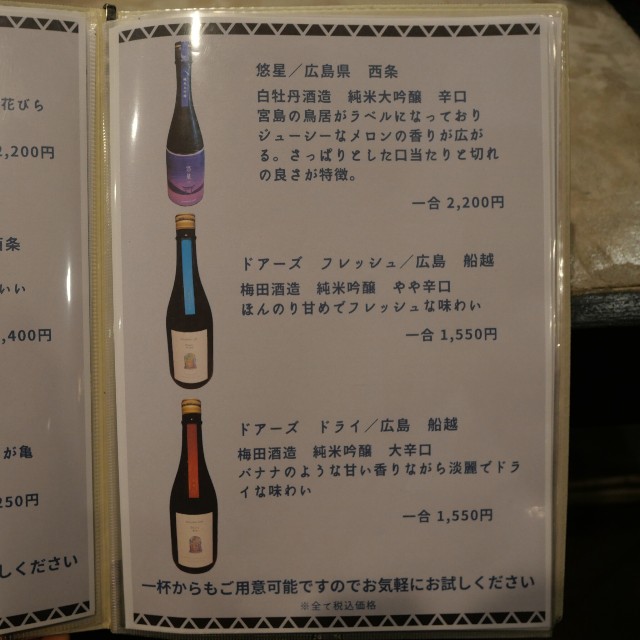 花びら
2,200円
西条
いい
,400円
が亀
250円
しください
悠星／広島県　西条
白牡丹酒造　純米大吟醸　辛口
宮島の鳥居がラベルになっており
ジューシーなメロンの香りが広が
る。さっぱりとした口当たりと切れ
の良さが特徴。
一合 2,200円
ドアーズ　フレッシュ／広島　船越
梅田酒造　純米吟醸　やや辛口
ほんのり甘めでフレッシュな味わい
一合 1,550円
ドアーズ　ドライ／広島　船越
梅田酒造　純米吟醸　大辛口
バナナのような甘い香りながら淡麗でドラ
イな味わい
一合 1,550円
一杯からもご用意可能ですのでお気軽にお試しください
※全て税込価格